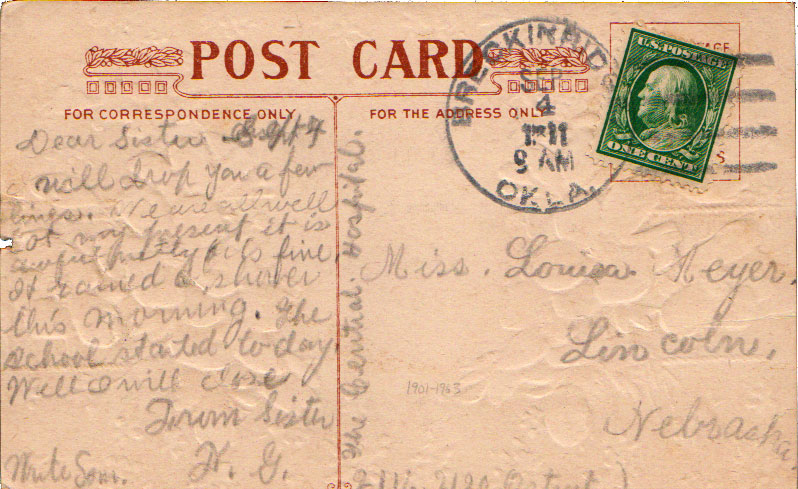 POST CARD
FOR CORRESPONDENCE ONLY
FOR THE ADDRESS ONLY
BRECKINRIDGE
SEP
4
1911
9 AM
OKLA.
U.S. POSTAGE
ONE CENT
Dear Sister Sept 4
will drop you a few
lines. We are all well
at present it is
fine.
It rained a shower
this morning. The
school started to day
Well I will close
From Sister
H. G.
Write Soon.
The Central Hospital.
Miss. Louisa Heyer.
Lincoln,
Nebraska
1901-1963